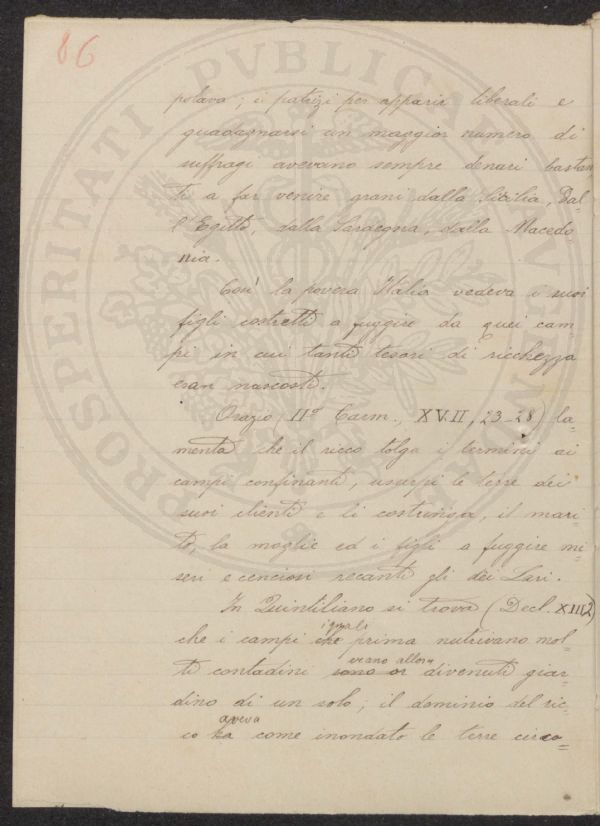 86
polava; i patrizi per apparir liberali e
guadagnarsi un maggior numero di
suffragi avevano sempre denari bastan
ti a far venire grani dalla Sicilia, dal-
l'Egitto, dalla Sardegna, dalla Macedo-
nia.
Così la povera Italia vedeva i suoi
figli costretti a fuggire da quei cam-
pi in cui tanti tesori di ricchezza
eran nascosti.
Orazio (IIº Carm., XVII, 23-28) la-
menta che il ricco tolga i termini ai
campi confinanti, usurpi le terre dei
suoi clienti e li costringa, il mari-
to, la moglie ed i figli a fuggire mi-
seri e cenciosi recanti gli dei Lari.
In Quintiliano si trova (Decl. XIII2)
i quali
che i campi che prima nutrivano mol-
erano allora
ti contadini sono or divenuti giar-
dino di un solo; il dominio del ric-
aveva
co ha come inondato le terre circo-
PROSPERITATI PVBLICAE AVGENDAE